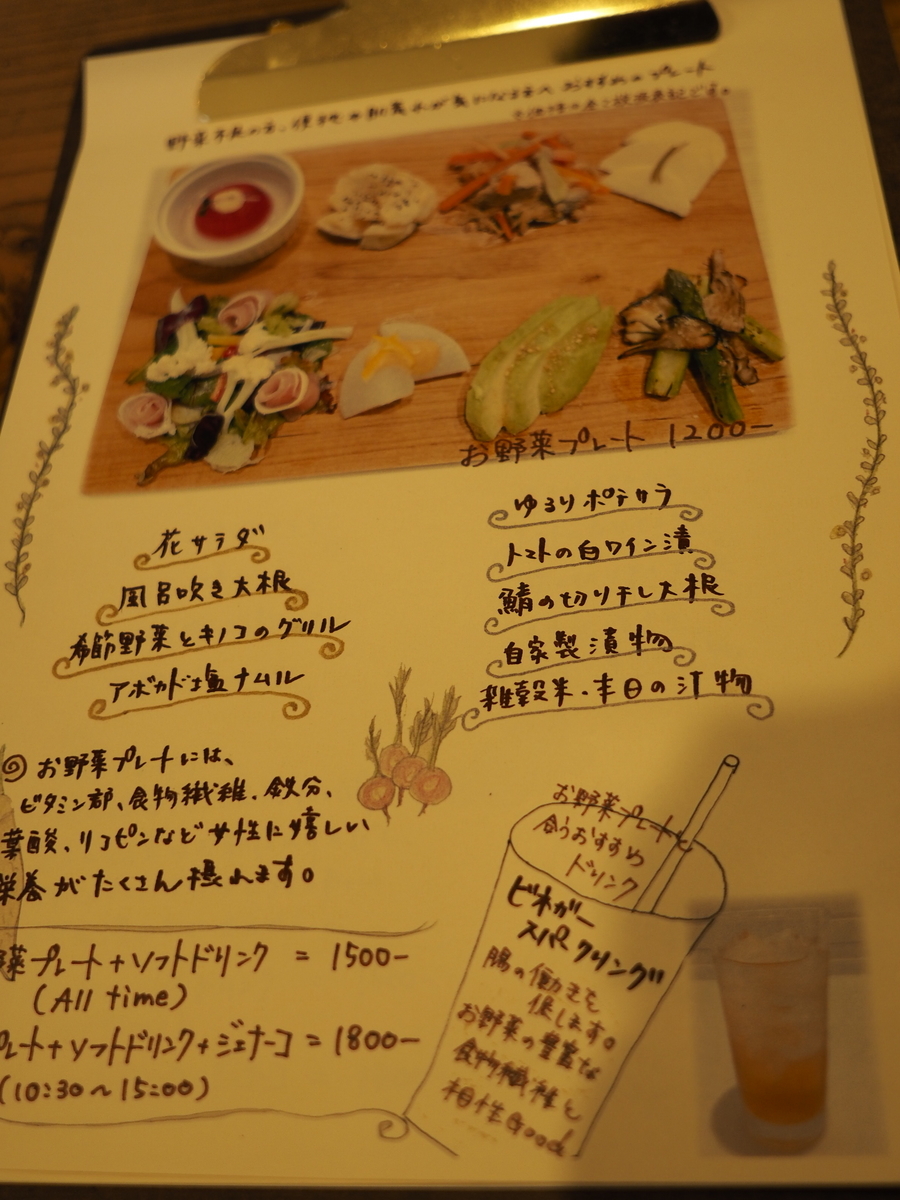 野菜不足の方、便秘や肌荒れが気になる方へおすすめのプレート
お野菜プレート 1200ー
花サラダ
風呂吹き大根
季節野菜とキノコのグリル
アボカド塩ナムル
ゆるりポテサラ
トマトの白ワイン漬
鯖の切り干し大根
自家製漬物
雑穀米・本日の汁物
お野菜プレートには、
ビタミン郡、食物繊維、鉄分、
葉酸、リコピンなど女性に嬉しい
栄養がたくさん摂れます。
菜プレート+ソフトドリンク = 1500ー
(All time)
プレート+ソフトドリンク+ジェナーコ = 1800ー
(10:30〜15:00)
お野菜プレートと
合うおすすめ
ドリンク
ビネガー
スパークリング
腸の働きを
促します。
お野菜の豊富な
食物繊維と
相性Good